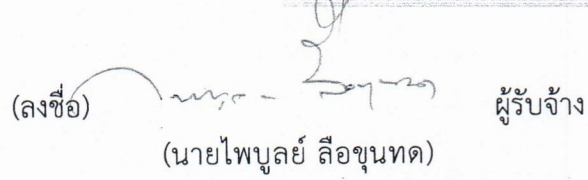 (ลงชื่อ) ผู้รับจ้าง
(นายไพบูลย์ ลือขุนทด)